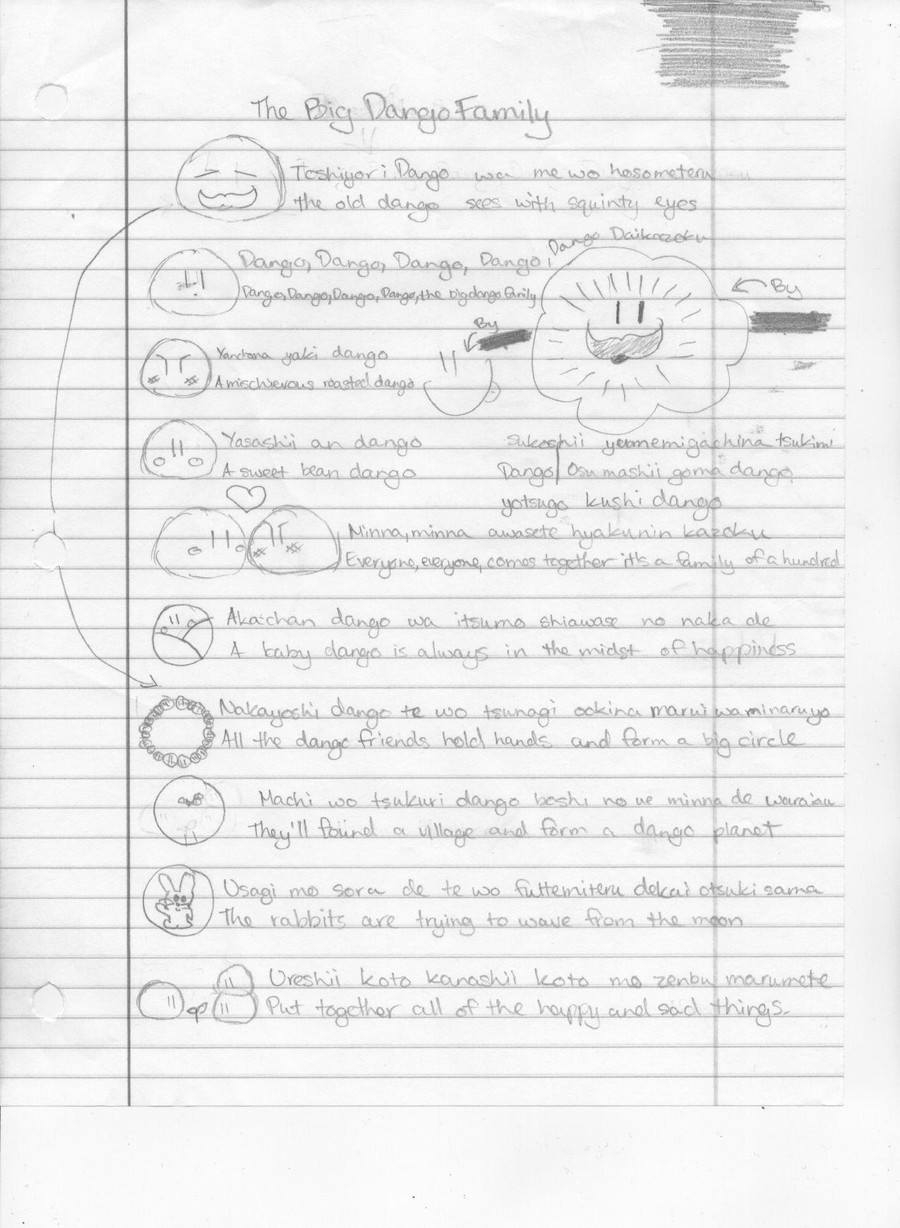 The Big Dango Family
Toshiyori Dango wa me wo hosometeru
the old dango sees with squinty eyes
Dango, Dango, Dango, Dango, Dango Daikazoku
Dango, Dango, Dango, Dango, the big dango family
By
By
Yanchana yaki dango
A mischievous roasted dango
Yasashii an dango
A sweet bean dango
Sukoshii yumemigachina tsukimi
Dango/Osumashii goma dango
yotsugo kushi dango
Minna, minna awasete hyakunin kazoku
Everyone, everyone, comes together it's a family of a hundred
Akaichan dango wa itsumo shiawase no naka de
A baby dango is always in the midst of happiness
Nakayoshi dango te wo tsunagi ookina marui waminaruyo
All the dango friends hold hands and form a big circle
Machi wo tsukuri dango boshi no ue minna de waraiau
They'll found a village and form a dango planet
Usagi mo sora de te wo futtemiteru dekai otsuki sama
The rabbits are trying to wave from the moon
Ureshii koto kanashii koto mo zenbu marumete
Put together all of the happy and sad things.